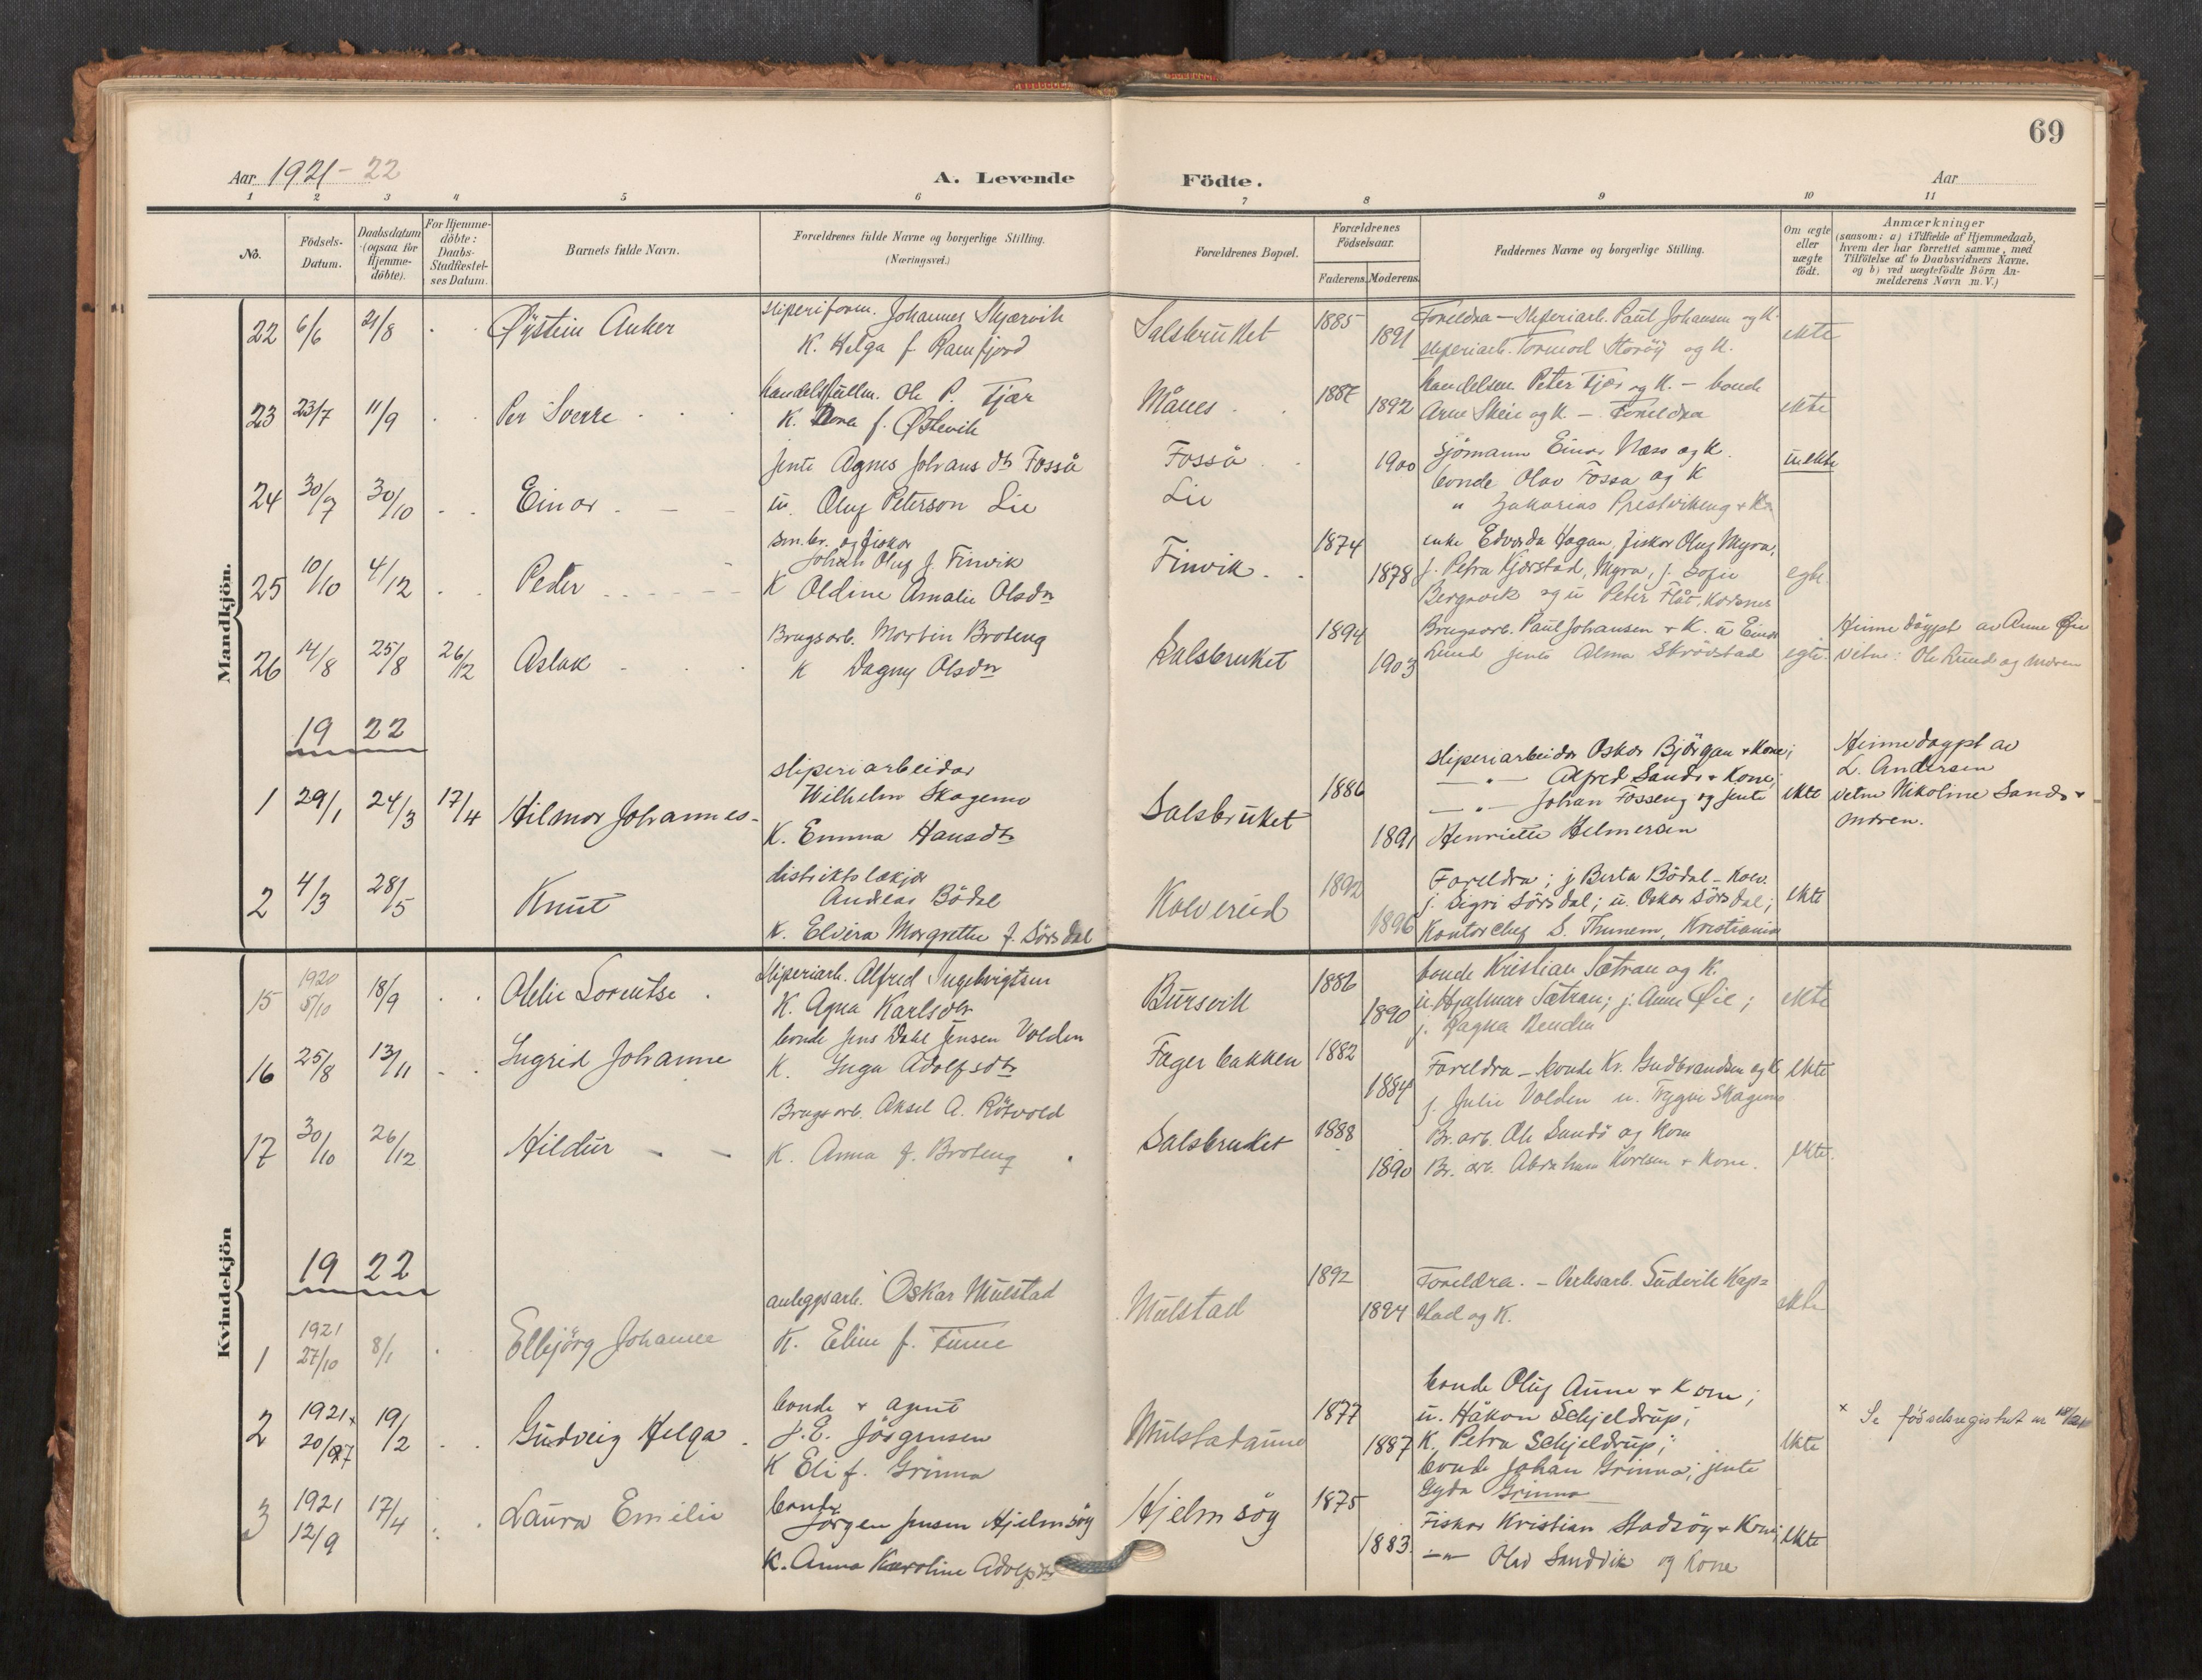 69
Aar 1921-22
A. Levende
Födte.
Aar
1 2 3 4 5 6 7 8 9 10 11
No.
Födsels-
Datum.
Daabsdatum
(ogsaa for
Hjemme-
döbte).
For Hjemme-
döbte:
Daabs-
Stadfæstel-
ses Datum.
Barnets fulde Navn.
Forældrenes fulde Navne og borgerlige Stilling.
(Næringsvei.)
Forældrenes Bopæl.
Forældrenes
Födselsaar.
Faderens.
Moderens.
Faddernes Navne og borgerlige Stilling.
Om ægte
eller
uægte
födt.
Anmærkninger
(saasom: a) i Tilfælde af Hjemmedaab,
hvem der har forrettet samme, med
Tilföielse af to Daabsvidners Navne,
og b) ved uægtefödte Börn An-
melderens Navn m. V.)
Mandkjön.
22 6/6 21/8 Øystein Anker
sliperiform. Johannes Skjærvik
K. Helga f. Ramfjord
Salsbruket 1885 1891
Foreldra — sliperiarb. Paul Johansen og K.
sliperiarb. Tormod Storöy og K.
ekte
23 23/7 11/9 Per Sverre
handelsfullm. Ole P. Tjær
K. Dora f. Østevik
Månes 1887 1892
handelsm. Peter Tjær og K. — bonde
Arne Skeie og K — Foreldra
ekte
24 30/7 30/10 Einar
jente Agnes Johans dtr Fosså
u. Oluf Peterson Lie
Fosså
Lie
1900
sjömann Einar Næss og K.
bonde Olav Fossa og K
" Zakarias Prestvikeng + K
uekte
25 10/10 4/12 Peder
sm.br. og fiskar
Johan Oluf J. Finvik
K Oldine Amalie Olsdtr
Finvik 1874 1878
enke Edvarda Hagan, fiskar Oluf Myra,
j. Petra Kjærstad, Myra, j. Sofie
Bergsvik og u Peter Flåt, Korsnes
egte
26 14/8 25/8 26/12 Aslak
Brugsarb. Martin Broteng
K Dagny Olsdtr
Salsbruket 1894 1903
Brugsarb. Paul Johansen + K. u Einar
Lund jente Alma Skrödstad
egte
Heime döypt av Anne Øie
vitne: Ole Lund og moren
19 22
1 29/1 24/3 17/4 Hilmar Johannes
sliperiarbeidar
Wilhelm Skagemo
K. Emma Hansdtr
Salsbruket 1886 1891
sliperiarbeidar Oskar Björgan + Kone;
— " — Alfred Sandö + Kone;
— " — Johan Fosseng og jente
Henriette Helmersen
ekte
Heimedöypt av
L. Andersen
vitne Nikoline Sandö +
moren.
2 4/3 28/5 Knut
distriktslækjar
Andreas Bödal
K. Elvira Margrethe f. Sörsdal
Kolvereid 1892 1896
Foreldra; j Berta Bödal - Kolv.
j. Sigri Sörsdal; u. Oskar Sörsdal;
Kontorchef S. Thunem, Kristiania
ekte
Kvindekjön
15 1920 5/10 18/9 Olelie Lorentse
sliperiarb. Alfred Ingebrigtsen
K. Agna Karlsdtr
Bursvik 1886 1890
bonde Kristian Sætran og K.
u. Hjalmar Sætran; j. Anna Øie;
j. Ragna Bendin
ekte
16 25/8 13/11 Ingrid Johanne
bonde Jens Dahl Jensen Volden
K. Inga Adolfsdtr
Fagerbakken 1882 1884
Foreldra — bonde Kr. Gudbrandsen og K
j. Julie Volden u. Trygve Skagemo
ekte
17 30/10 26/12 Hildur
Brugsarb. Aksel A. Rötvold
K. Anna f. Broteng
Salsbruket 1888 1890
Br.arb. Ole Sandö og Kone
Br. arb. Abraham Karlsen + Kone.
ekte
19 22
1 1921 27/10 8/1 Elbjörg Johanne
anleggsarb. Oskar Mulstad
K. Elise f. Finne
Mulstad 1892 1894
Foreldra. — Verksarb. Gudvik Kap=
stad og K.
ekte
2 1921x 20/7 19/2 Gudveig Helga
bonde + agent
J. E. Jörgensen
K Eli f. Grinna
Mulstadaune 1877 1887
bonde Oluf Aune + Kone;
u. Håkon Schjeldrup;
K, Petra Schjeldrup;
bonde Johan Grinna; jente
Gyda Grinna
ekte
x Se födselsregistret nr
3 1921 12/9 17/4 Laura Emilie
bonde
Jörgen Jensen Hjelmsöy
K. Anna Karoline Adolfsdtr
Hjelmsöy 1875 1883
Fiskar Kristian Stadsöy + Kone;
—"— Olav Sandvik og Kone
ekte